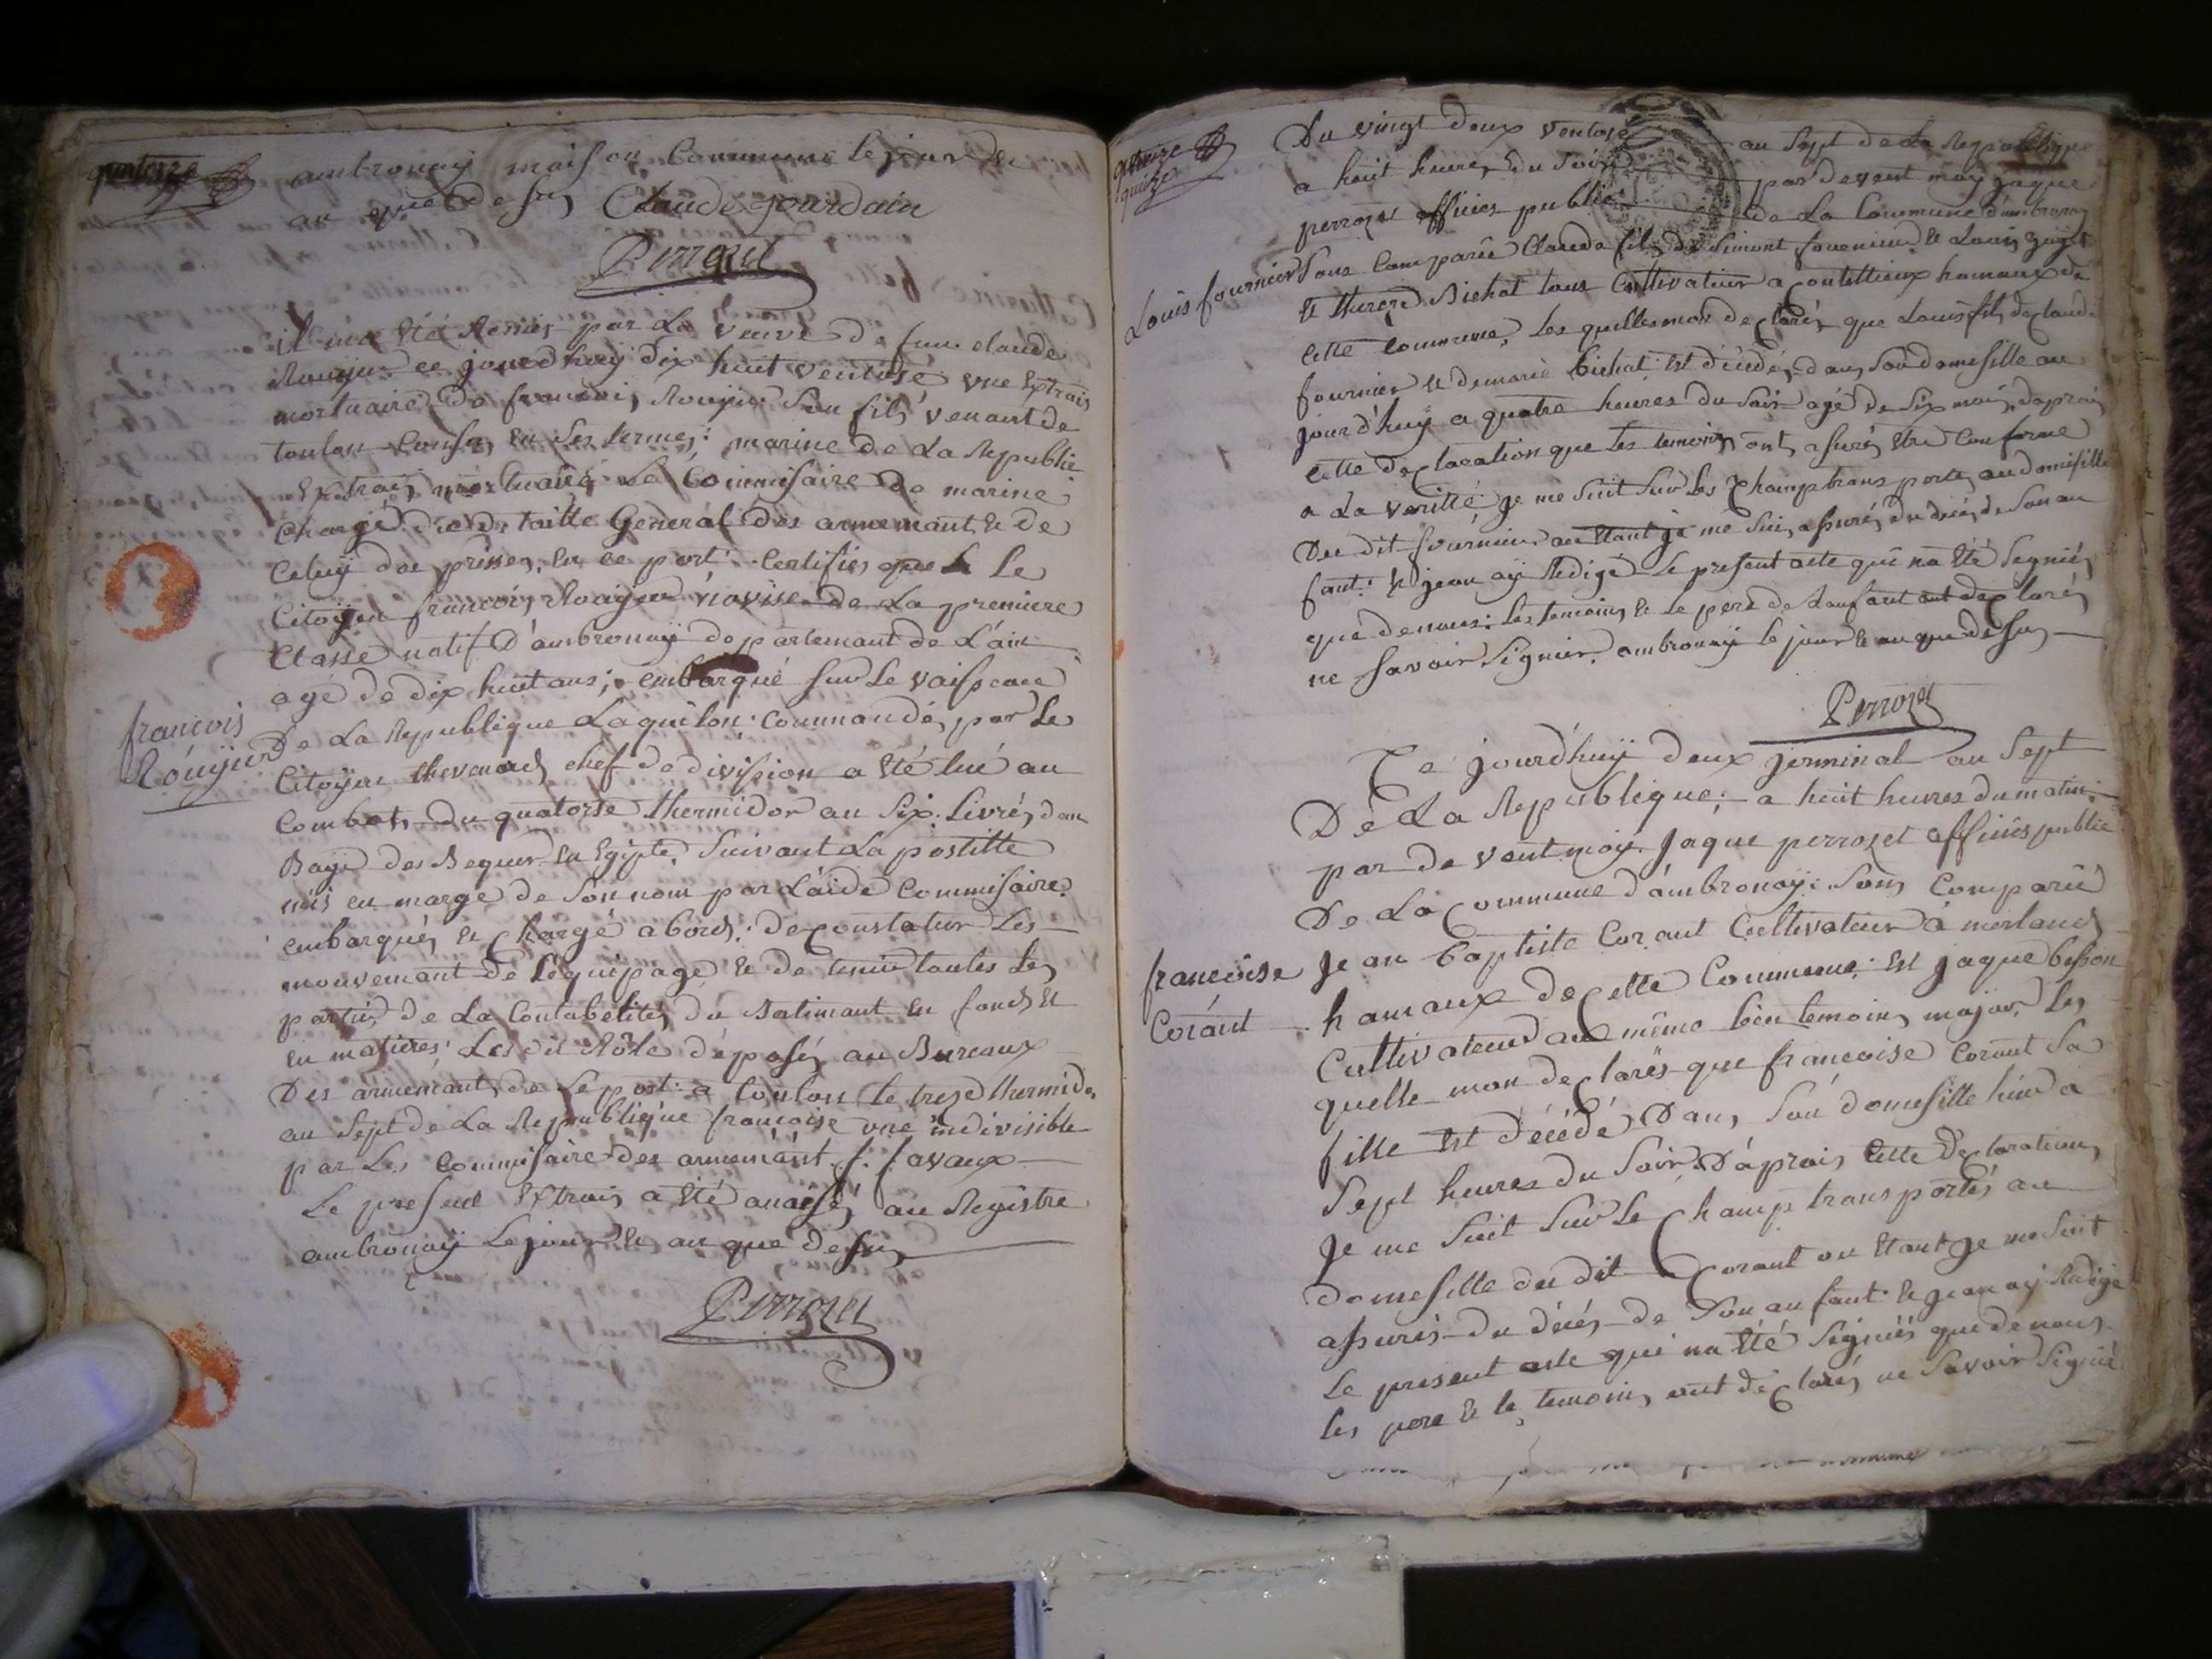 quatorze
ambronaÿ maison Commune le jour et
an que desus Claude Jourdain
Perrozet
il ma été Remis par La veuve de feu claude
Rouyer ce jourdhuÿ dix huit ventose une Extrais
mortuaire de francois Rouyer Son fils venant de
toulon Consu en ses termes: marine de La Republic
Extrais mortuaire Le Commisaire de marine
Chargé du detaille General des armemant & de
Celuÿ des prises, en ce port: Certifies que Le
Citoÿen francois Rouyer novise de La premiere
Classe natif D'ambronaÿ departemant de L'ain
agé de dix huit ans; embarqué sur Le vaiseaux
francois
Rouÿer
De La Republique Laquilon: Commandé, par Le
Citoÿen thevenard chef de division a été tué au
Combat du quatorse thermidor an Six: Livré, dan
Baye des Bequer en Egipte, Suivant La postille
mis en marge de Son nom par L'aide Commisaire
embarqué, et Chargé abord: de Constater Les
mouvemant de L'équipage, et de tenir toutes Les
partie, de La Contabélité, du Batimant en fond et
en matieres: Les dit Rôle déposé, au Bureaux
Des armemant, de Le port: a toulon le treze thermido,
an Sept de La Republique francoise une indivisible
par Les Commisaire des armemant f. favaux
Le present Extrais a été anexsé, au Registre
ambronaÿ Le jour et an que desus
Perrozet
quinze
Du vingt deux ventose an Sept de La Republique
a huit heures du Soir par devent moÿ Jaque
perrozet officier public de La Commune d'ambronaÿ
Louis fournier
Sons Comparûe Claude fils de Simont fournier et Louis
et Bichat tous Cultivateur a Coutellieux hamaux de
Cette Commune, Les quelles mon declarés que Louis fils de claude
fournier et de marie bichat: est décédé, dans Son domesille au
jourd'huÿ a quatre heures du Soir agé de Six mois, daprais
Cette declaration que les temoins ont asuré, être Conforme
a La verité: je me Suit Sur Les Champ transporte, au domésille
Du dit fournier au Etant je me Suis assurés, du désés de Son an
fant: et jean aÿ Redigé Le present acte qui na été Segniés,
que de nous: Les temoins & Le pere de Lanfant ont declarés,
ne savoir Signier. ambronaÿ le jour & an que desus
Perrozet
Ce jourd'huÿ deux jerminal an Sept
De La Republique: a huit heures du matin
par de vant moÿ Jaque perrozet officier public
De La Commune d'ambronaÿ: Sons Comparûe
francoise
Corant
Jean baptiste Corant Cultivateur à merland
hamaux de Cette Commune: et Jaque besson
Cultivateur au même lieu temoins, major, les
quelle mon declarés que francoise Corant Sa
fille est décédé Dans, Son domesille hier a
Sept heures du Soir, D'aprais Cette Declaration,
Je me Suit Sur Le Champ transportés au
domesille du dit Corant ou Etant je me Suit
assurés du désés de Son anfant: & jean aÿ Redigé
Le present acte qui na été Segniés que de nous.
Les pere & le temoins ont declarés, ne Savoir Signié